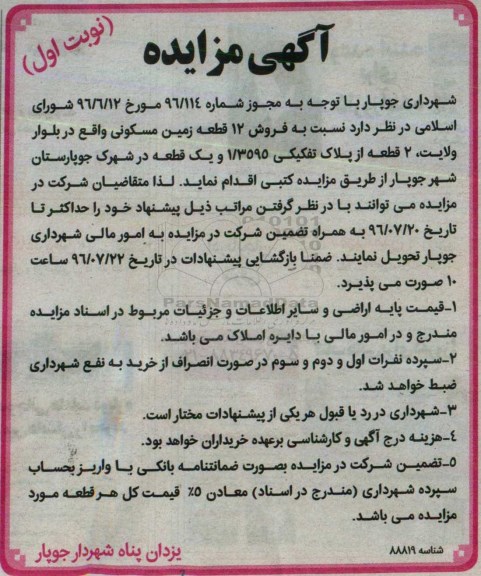 (نوبت اول)
آگهی مزایده
شهرداری جوپار با توجه به مجوز شماره ۹۶/۱۱۴ مورخ ۹۶/۶/۱۲ شورای
اسلامی در نظر دارد نسبت به فروش ۱۲ قطعه زمین مسکونی واقع در بلوار
ولایت، ۲ قطعه از پلاک تفکیکی ۱/۳۵۹۵ و یک قطعه در شهرک جوپارستان
شهر جوپار از طریق مزایده کتبی اقدام نماید. لذا متقاضیان شرکت در
مزایده می توانند با در نظر گرفتن مراتب ذیل پیشنهاد خود را حداکثر تا
تاریخ ۹۶/۰۷/۲۰ به همراه تضمین شرکت در مزایده به امور مالی شهرداری
جوپار تحویل نمایند. ضمنا بازگشایی پیشنهادات در تاریخ ۹۶/۰۷/۲۲ ساعت
۱۰ صورت می پذیرد.
ParsNamadData
۱-قیمت پایه اراضی و سایر اطلاعات و جزئیات مربوط در اسناد مزایده
مندرج و در امور مالی با دایره املاک می باشد.
۲-سپرده نفرات اول و دوم و سوم در صورت انصراف از خرید به نفع شهرداری
ضبط خواهد شد.
۳-شهرداری در رد یا قبول هر یکی از پیشنهادات مختار است.
۴-هزینه درج آگهی و کارشناسی برعهده خریداران خواهد بود.
۵-تضمین شرکت در مزایده بصورت ضمانتنامه بانکی یا واریز بحساب
سپرده شهرداری (مندرج در اسناد) معادن ۵٪ قیمت کل هر قطعه مورد
مزایده می باشد.
شناسه ۸۸۸۱۹
یزدان پناه شهردار جوپار